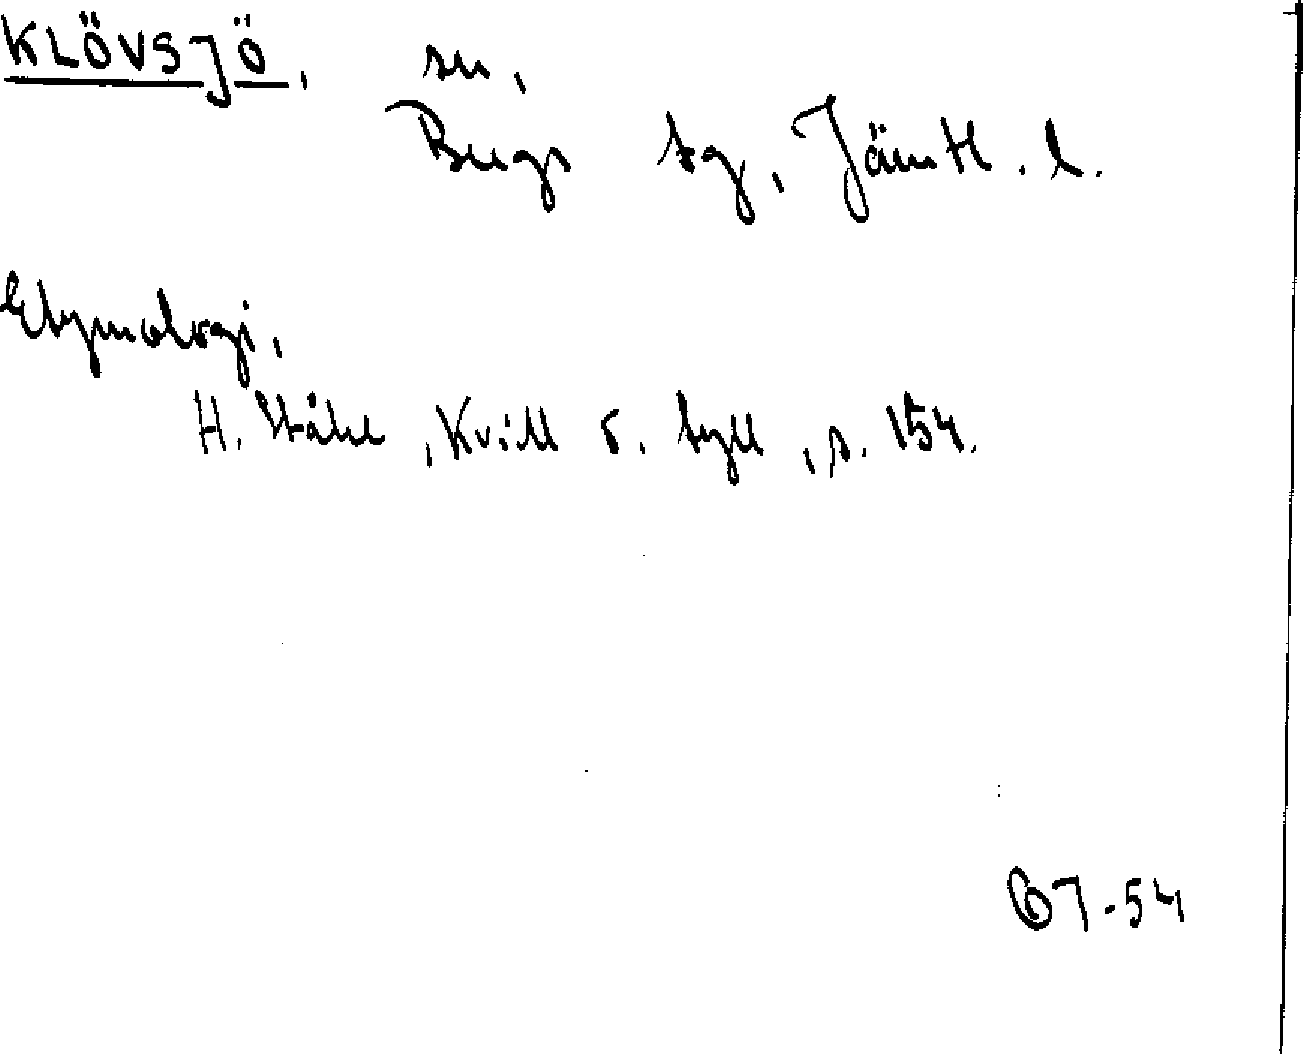 KLÖVSJÖ, sn,
Bergs tg, Jämtl. l.
Etymologi,
H. Ståhl, Kvill o. tyll, s. 154.
67-54